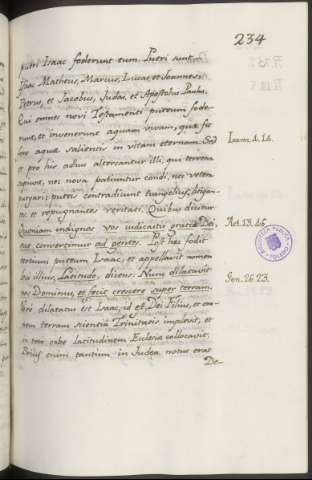 234
pueri Isaac foderunt eum. Pueri sunt
Isaac Matheus, Marcus, Lucas et Joannes:
Petrus, et Jacobus, Judas, et Apostolus Paulus.
omnes novi Testamenti puteum fode-
runt, et invenerunt aquam vivam, quae fit
fons aquae salientis in vitam eternam. Sed
et pro his adhuc altercantur illi, qui terrena
sapiunt, nec nova patiuntur condi, nec vetera
purgari: puteis contradicunt evangelicis,
repugnantes veritati. Quibus dicitur
Quoniam indignos vos iudicastis gratia Dei,
ecce convertimur ad gentes. Post hec fodit
tertium puteum Isaac, et appellavit nomen
illius, Latitudo, dicens: Nunc dilatavit
nos Dominus, et fecit crescere super terram.
Vere dilatatus est Isaac, id est Dei Filius, et om-
nem terram scientia Trinitatis implevit, et
in toto orbe latitudinem Ecclesiae collocavit.
Prius enim tantum in Judea notus erat
De-
Joann. 4. 14.
Act. 13. 46.
Gen. 26. 23.